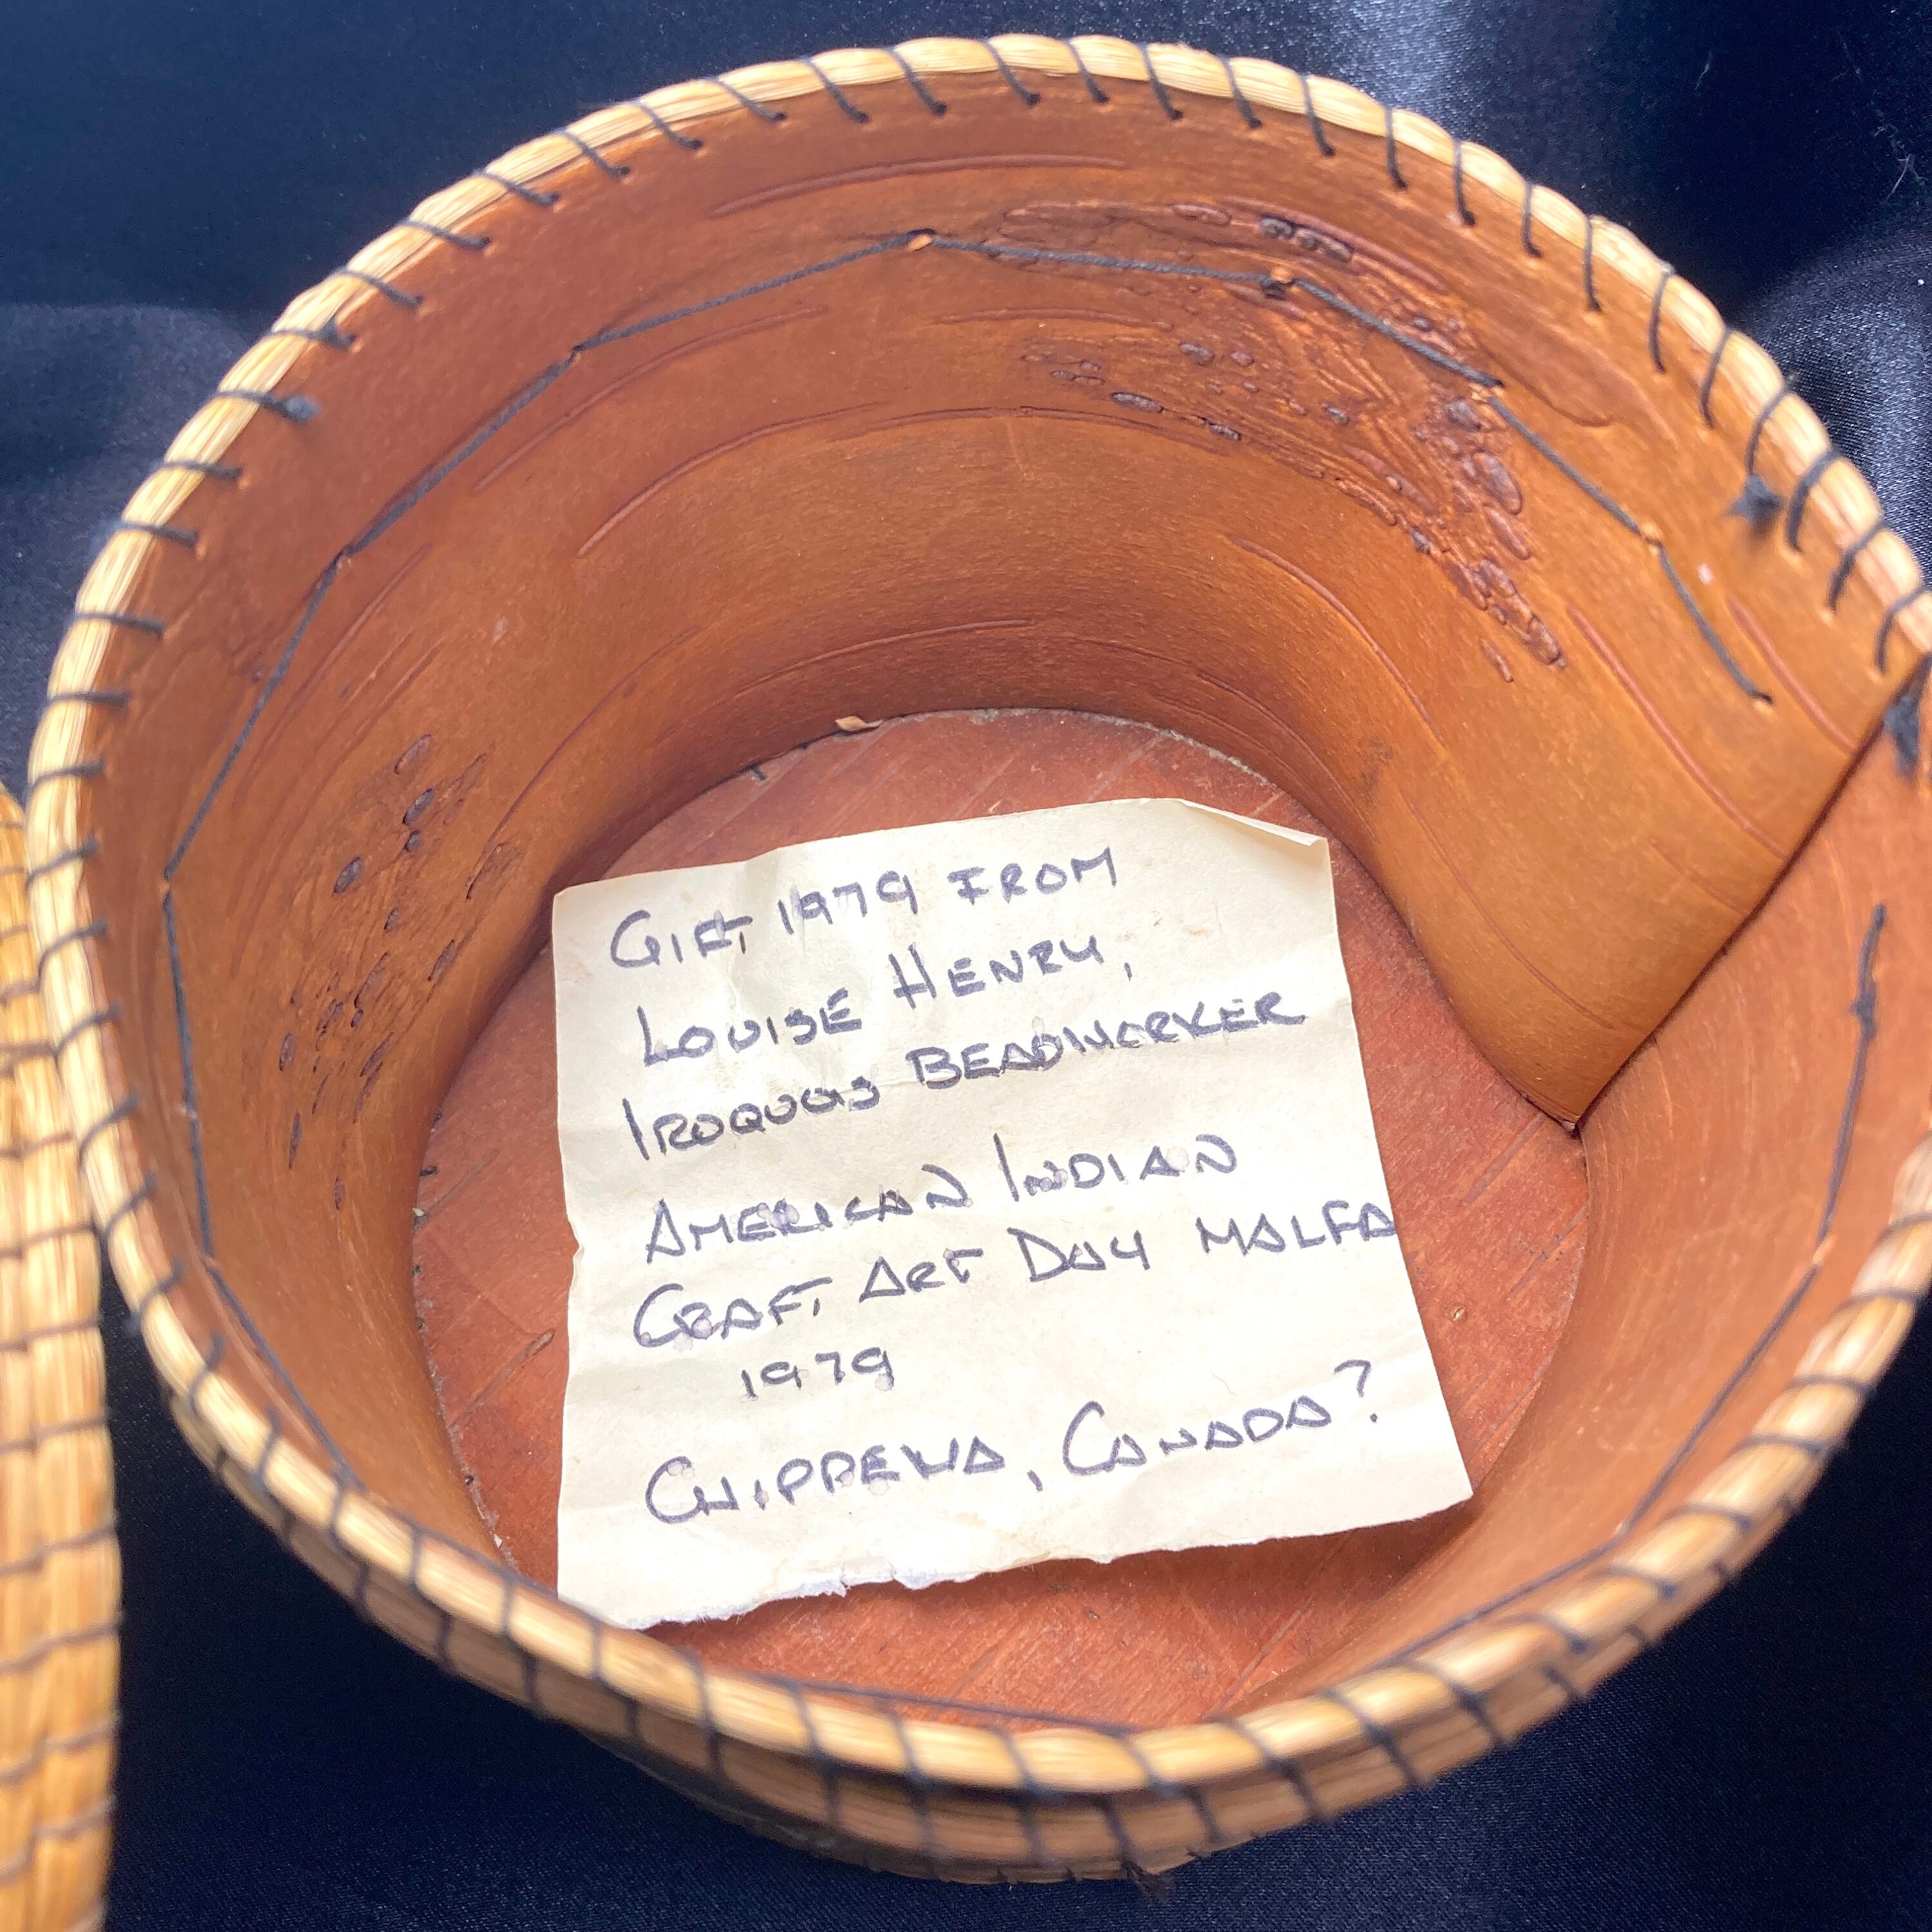 GIFT 1979 FROM
LOUISE HENRY,
IROQUOIS BEADWORKER
AMERICAN INDIAN
CRAFT ART DAY MALFA
1979
CHIPPEWA, CANADA?